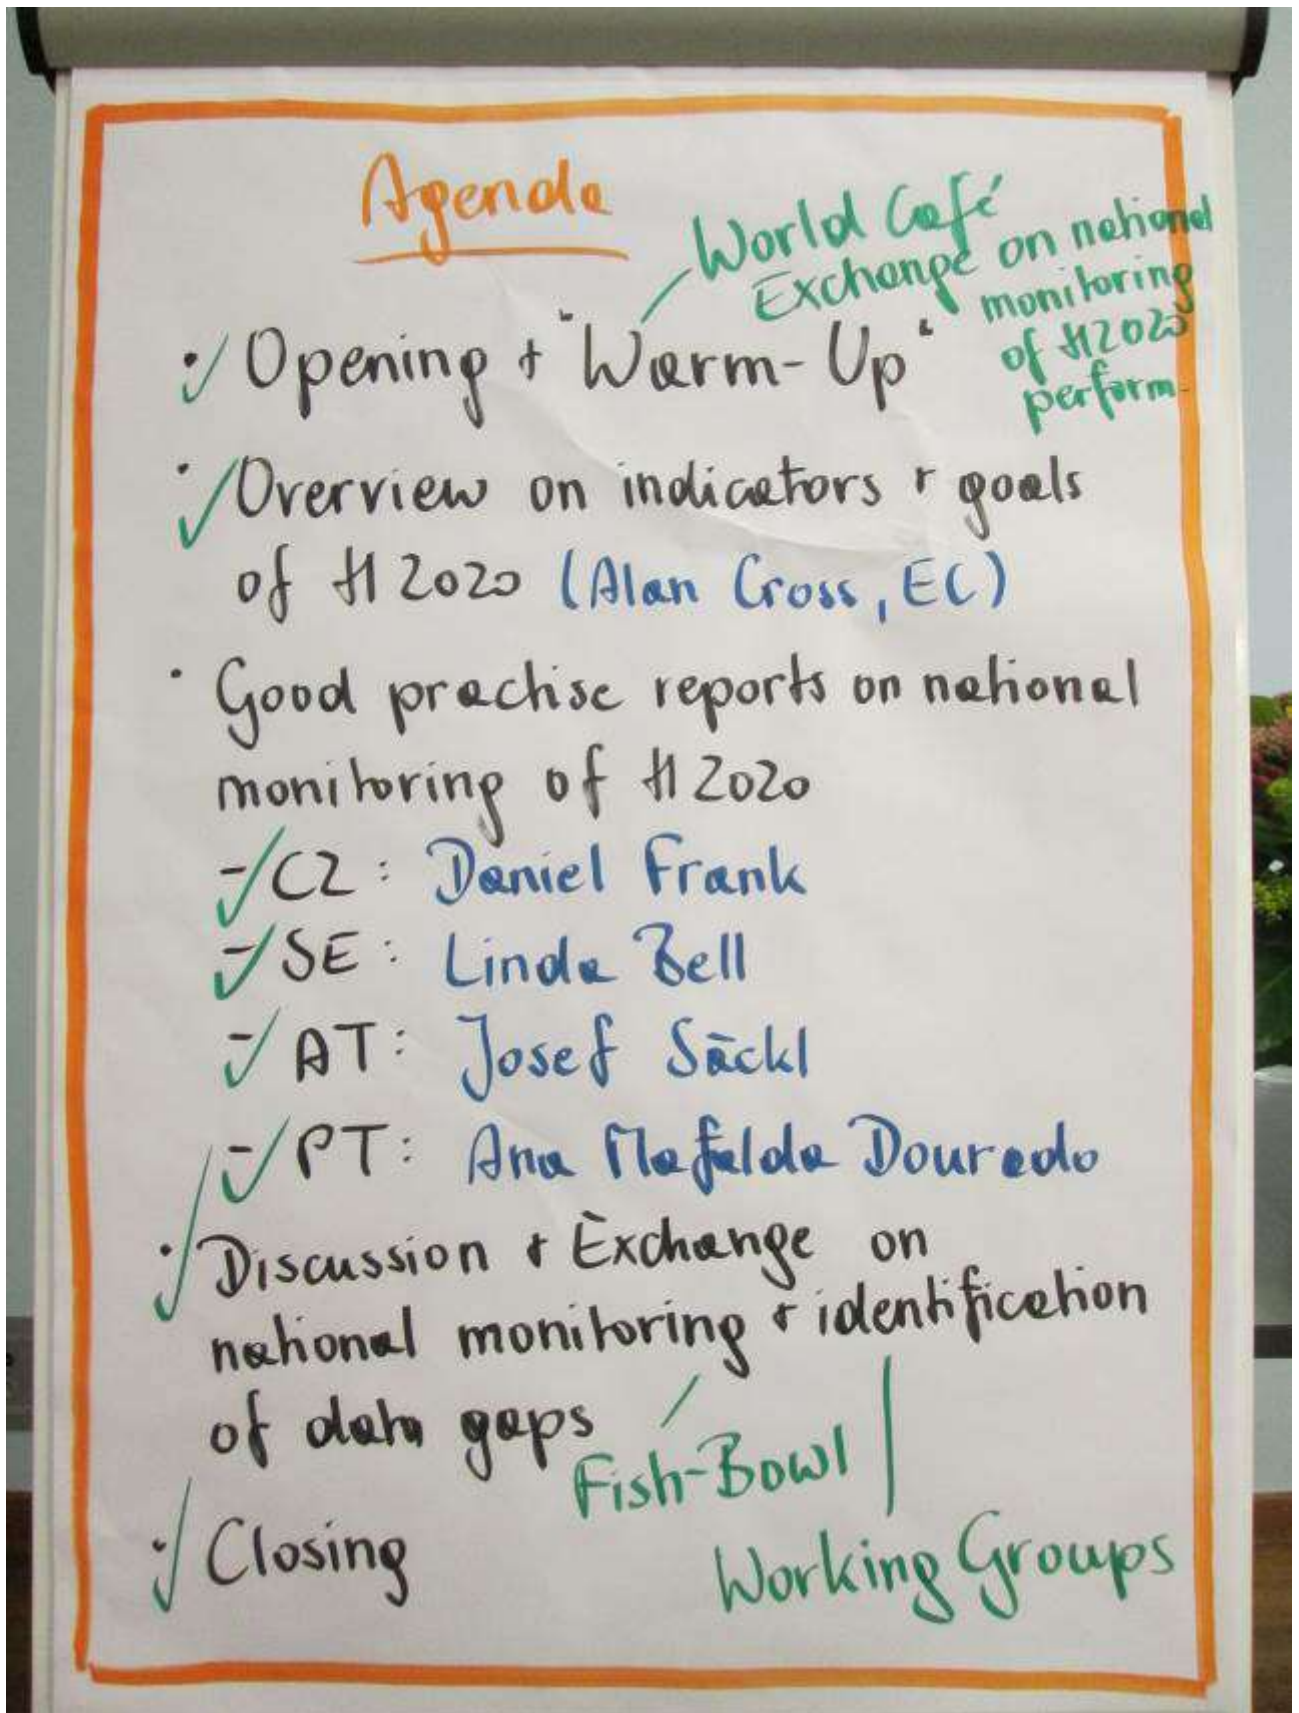 Agenda
World Café
Exchange on national
monitoring
of H2020
perform.
• Opening + "Warm-Up"
• Overview on indicators + goals
of H2020 (Alan Cross, EC)
• Good practise reports on national
monitoring of H2020
- CZ: Daniel Frank
- SE: Linda Bell
- AT: Josef Säckl
- PT: Ana Mafalda Dourado
• Discussion + Exchange on
national monitoring + identification
of data gaps
Fish-Bowl
• Closing
Working Groups